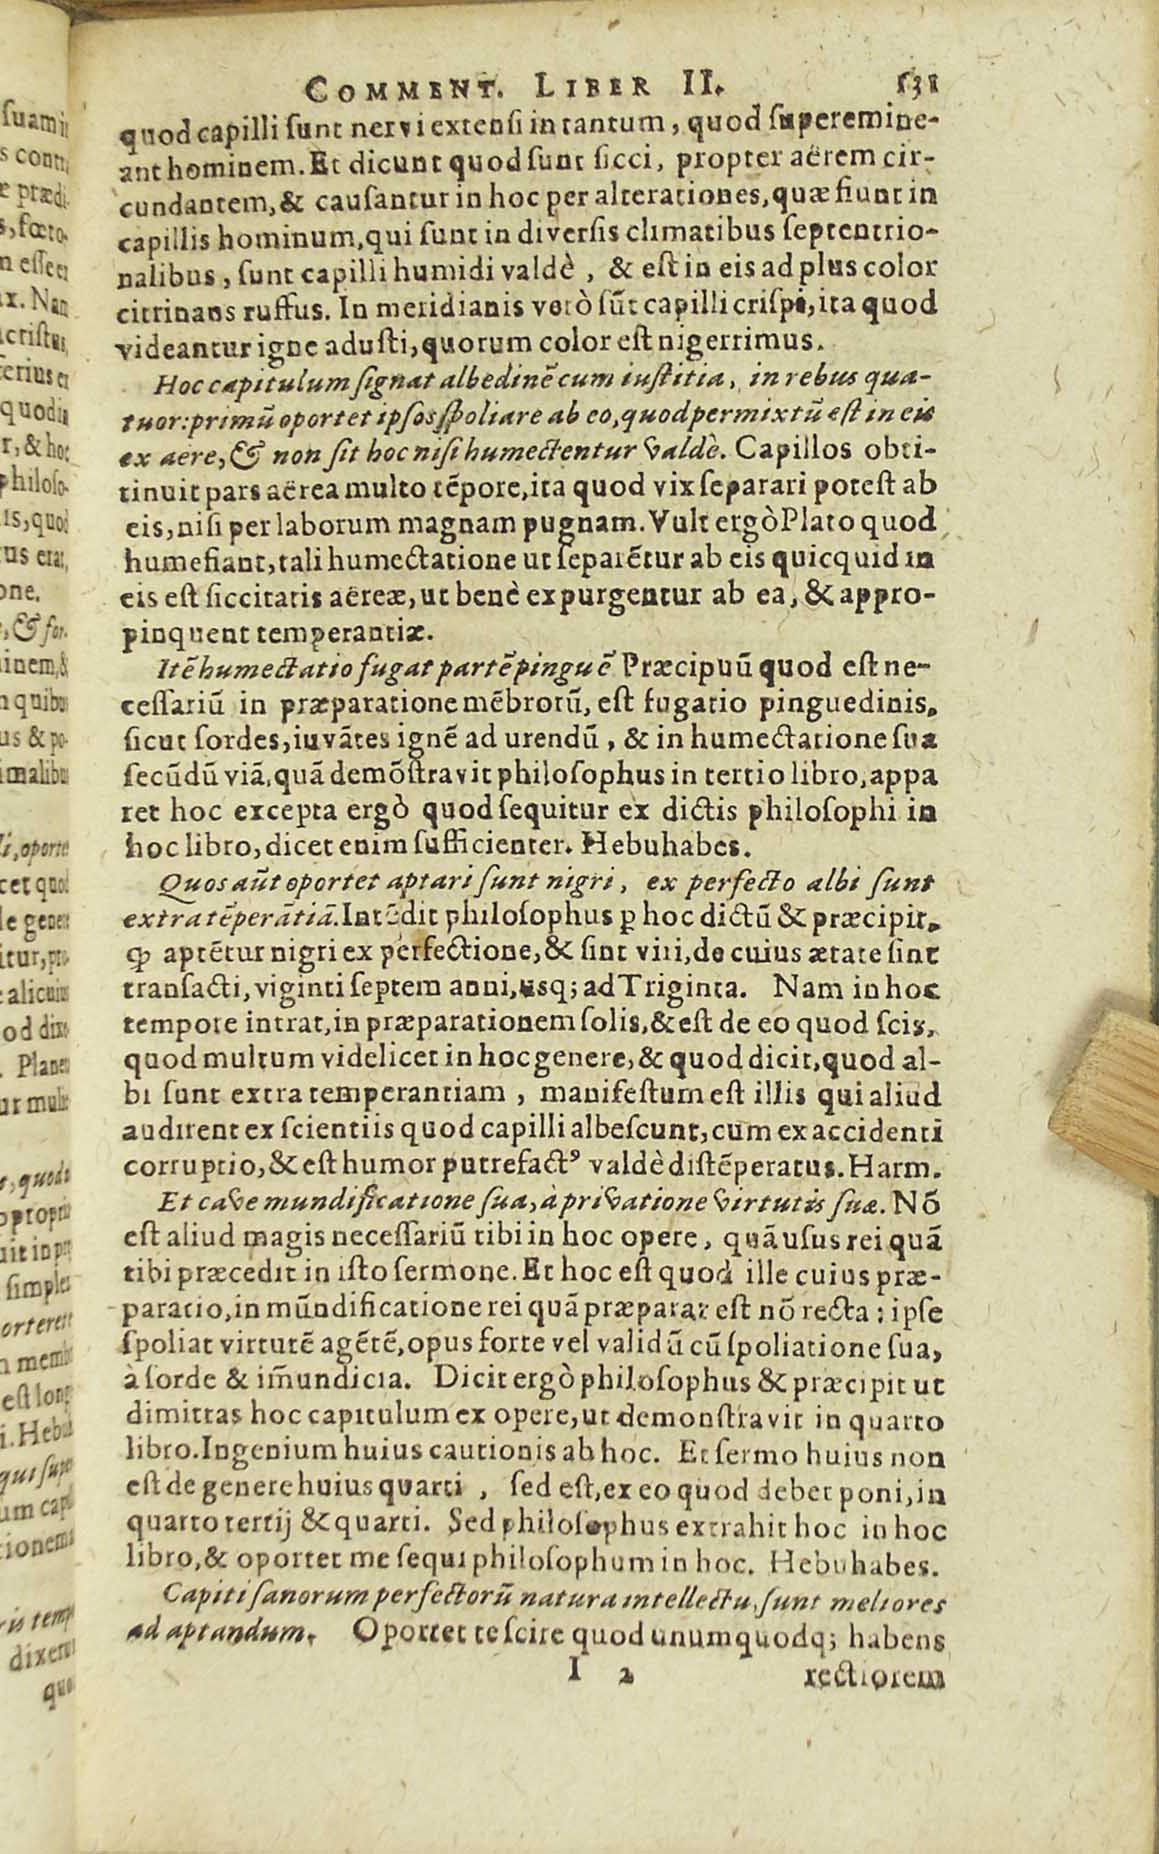 COMMENT. LIBER II. 131
quod capilli sunt nervi extensi in tantum, quod superemine-
ant hominem. Et dicunt quod sunt sicci, propter aërem cir-
cundantem, & causantur in hoc per alterationes, quæ fiunt in
capillis hominum, qui sunt in diversis climatibus septentrio-
nalibus, sunt capilli humidi valdè, & est in eis ad plus color
citrinans ruffus. In meridianis verò sũt capilli crispi, ita quod
videantur igne adusti, quorum color est nigerrimus.
Hoc capitulum signat albedinẽ cum iustitia, in rebus qua-
tuor: primũ oportet ipsos spoliare ab eo, quod permixtũ est in eis
ex aere, & non sit hoc nisi humectentur valdè. Capillos obti-
tinuit pars aërea multo tẽpore, ita quod vix separari potest ab
eis, nisi per laborum magnam pugnam. Vult ergò Plato quod
humefiant, tali humectatione ut separẽtur ab eis quicquid in
eis est siccitatis aëreæ, ut benè expurgentur ab ea, & appro-
pinquent temperantiæ.
Itẽ humectatio fugat partẽ pinguẽ Præcipuũ quod est ne-
cessariũ in præparatione mẽbrorũ, est fugatio pinguedinis,
sicut sordes, iuvãtes ignẽ ad urendũ, & in humectatione sua
secũdũ viã, quã demõstravit philosophus in tertio libro, appa
ret hoc excepta ergò quod sequitur ex dictis philosophi in
hoc libro, dicet enim sufficienter. Hebuhabes.
Quos aũt oportet aptari sunt nigri, ex perfecto albi sunt
extra tẽperãtiã. Intẽdit philosophus ꝑ hoc dictũ & præcipit,
ꝙ aptẽtur nigri ex perfectione, & sint viri, de cuius ætate sint
transacti, viginti septem anni, usq; ad Triginta. Nam in hoc
tempore intrat, in præparationem solis, & est de eo quod scis,
quod multum videlicet in hoc genere, & quod dicit, quod al-
bi sunt extra temperantiam, manifestum est illis qui aliud
audirent ex scientiis quod capilli albescunt, cum ex accidenti
corruptio, & est humor putrefactꝰ valdè distẽperatus. Harm.
Et cave mundificatione sua, à privatione virtutis suæ. Nõ
est aliud magis necessariũ tibi in hoc opere, quã usus rei quã
tibi præcedit in isto sermone. Et hoc est quod ille cuius præ-
paratio, in mũndificatione rei quã præparat est nõ recta: ipse
spoliat virtutẽ agẽtẽ, opus forte vel validũ cũ spoliatione sua,
à sorde & im̃undicia. Dicit ergò philosophus & præcipit ut
dimittas hoc capitulum ex opere, ut demonstravit in quarto
libro. Ingenium huius cautionis ab hoc. Et sermo huius non
est de genere huius quarti, sed est, ex eo quod debet poni, in
quarto tertij & quarti. Sed philosophus extrahit hoc in hoc
libro, & oportet me sequi philosophum in hoc. Hebuhabes.
Capiti sanorum perfectorũ natura intellectu, sunt meliores
ad aptandum. Oportet te scire quod unumquodq; habens
I 2 rectiorem